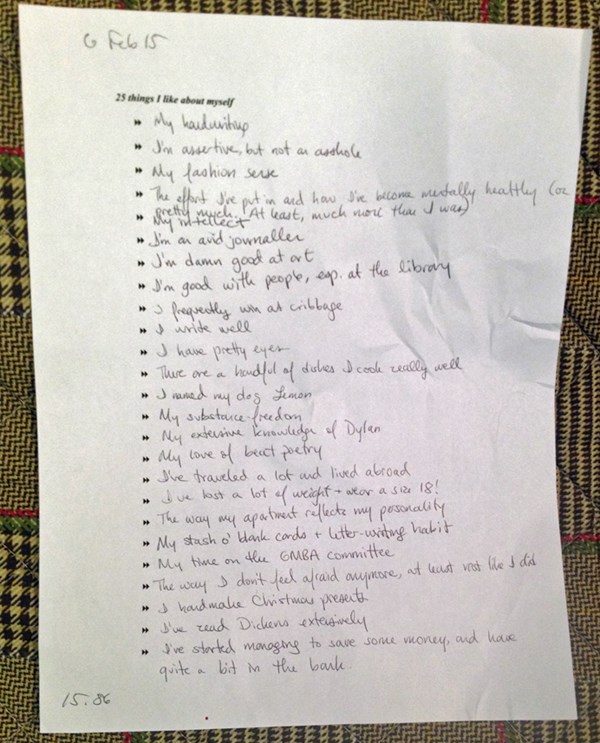 6 Feb 15
25 things I like about myself
My handwriting
I'm assertive, but not an asshole
My fashion sense
The effort I've put in and how I've become mentally healthy (or
pretty much. At least, much more than I was)
My intellect
I'm an avid journaller
I'm damn good at art
I'm good with people, esp. at the library
I frequently win at cribbage
I write well
I have pretty eyes
There are a handful of dishes I cook really well
I named my dog Lemon
My substance-freedom
My extensive knowledge of Dylan
My love of beat poetry
I've traveled a lot and lived abroad
I've lost a lot of weight + wear a size 18!
The way my apartment reflects my personality
My stash o' blank cards + letter-writing habit
My time on the GMBA committee
The way I don't feel afraid anymore, at least not like I did
I handmake Christmas presents
I've read Dickens extensively
I've started managing to save some money, and have
quite a bit in the bank.
15.86